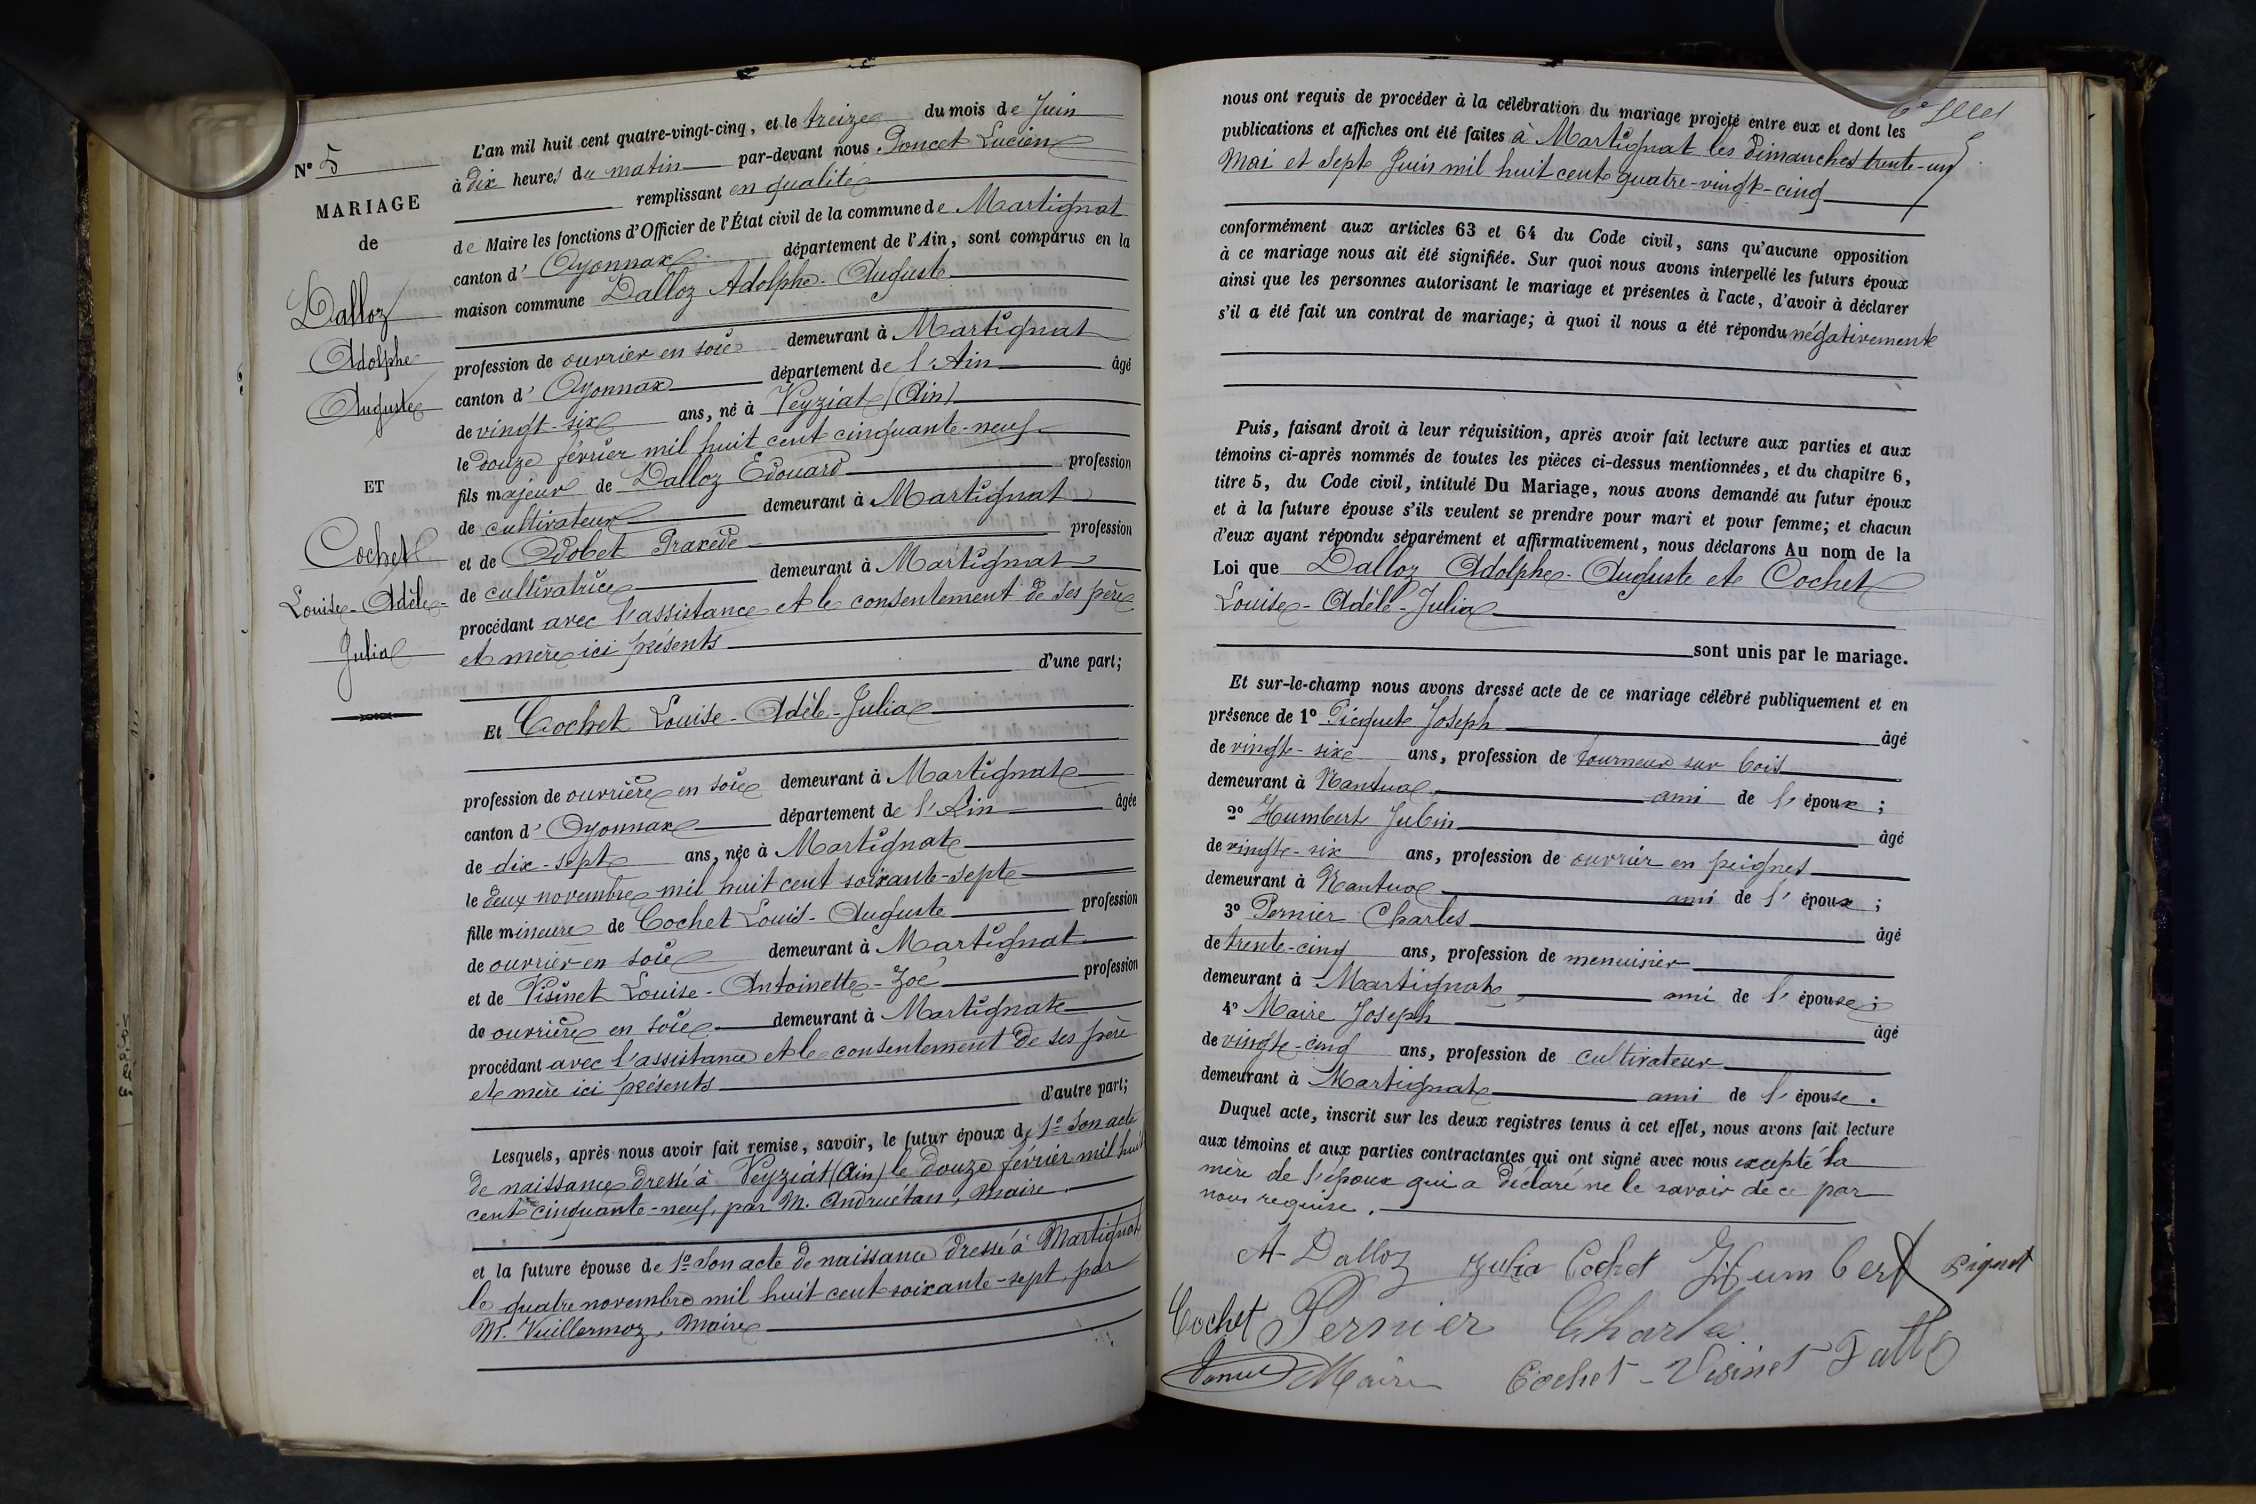 N° 5
MARIAGE
de
Dalloz
Adolphe
Auguste
ET
Cochet
Louise-Adèle-
Julia
L'an mil huit cent quatre-vingt-cinq, et le treize du mois de Juin
à dix heures du matin par-devant nous Poncet Lucien
remplissant en qualité
de Maire les fonctions d'Officier de l'État civil de la commune de Martignat
canton d' Oyonnax département de l'Ain, sont comparus en la
maison commune Dalloz Adolphe-Auguste
profession de ouvrier en soie demeurant à Martignat
canton d' Oyonnax département de l'Ain âgé
de vingt-six ans, né à Veyziat (Ain)
le douze février mil huit cent cinquante-neuf
fils majeur de Dalloz Edouard profession
de cultivateur demeurant à Martignat
et de Odobet Praxède profession
de cultivatrice demeurant à Martignat
procédant avec l'assistance et le consentement de ses père
et mère ici présents
d'une part;
Et Cochet Louise-Adèle-Julia
profession de ouvrière en soie demeurant à Martignat
canton d' Oyonnax département de l'Ain âgée
de dix-sept ans, née à Martignat
le deux novembre mil huit cent soixante-sept
fille mineure de Cochet Louis-Auguste profession
de ouvrier en soie demeurant à Martignat
et de Visinet Louise-Antoinette-Zoé profession
de ouvrière en soie demeurant à Martignat
procédant avec l'assistance et le consentement de ses père
et mère ici présents
d'autre part;
Lesquels, après nous avoir fait remise, savoir, le futur époux de 1° Son acte
de naissance dressé à Veyziat (Ain) le douze février mil huit
cent cinquante-neuf, par M. Andruétan, Maire
et la future épouse de 1° Son acte de naissance dressé à Martignat
le quatre novembre mil huit cent soixante-sept, par
M. Vuillermoz, Maire
nous ont requis de procéder à la célébration du mariage projeté entre eux et dont les
publications et affiches ont été faites à Martignat les dimanches trente-un
Mai et sept Juin mil huit cent quatre-vingt-cinq
conformément aux articles 63 et 64 du Code civil, sans qu'aucune opposition
à ce mariage nous ait été signifiée. Sur quoi nous avons interpellé les futurs époux
ainsi que les personnes autorisant le mariage et présentes à l'acte, d'avoir à déclarer
s'il a été fait un contrat de mariage; à quoi il nous a été répondu négativement
Puis, faisant droit à leur réquisition, après avoir fait lecture aux parties et aux
témoins ci-après nommés de toutes les pièces ci-dessus mentionnées, et du chapitre 6,
titre 5, du Code civil, intitulé Du Mariage, nous avons demandé au futur époux
et à la future épouse s'ils veulent se prendre pour mari et pour femme; et chacun
d'eux ayant répondu séparément et affirmativement, nous déclarons Au nom de la
Loi que Dalloz Adolphe-Auguste et Cochet
Louise-Adèle-Julia
sont unis par le mariage.
Et sur-le-champ nous avons dressé acte de ce mariage célébré publiquement et en
présence de 1° Picquet Joseph âgé
de vingt-six ans, profession de tourneur sur bois
demeurant à Nantua ami de l'époux;
2° Humbert Jubin âgé
de vingt-six ans, profession de ouvrier en peignes
demeurant à Nantua ami de l'époux;
3° Pernier Charles âgé
de trente-cinq ans, profession de menuisier
demeurant à Martignat, ami de l'épouse;
4° Maire Joseph âgé
de vingt-cinq ans, profession de cultivateur
demeurant à Martignat ami de l'épouse.
Duquel acte, inscrit sur les deux registres tenus à cet effet, nous avons fait lecture
aux témoins et aux parties contractantes qui ont signé avec nous excepté la
mère de l'époux qui a déclaré ne le savoir de ce par
nous requise.
A Dalloz Julia Cochet Humbert Piquet
Cochet Pernier Charle
Maire Cochet-Visinet